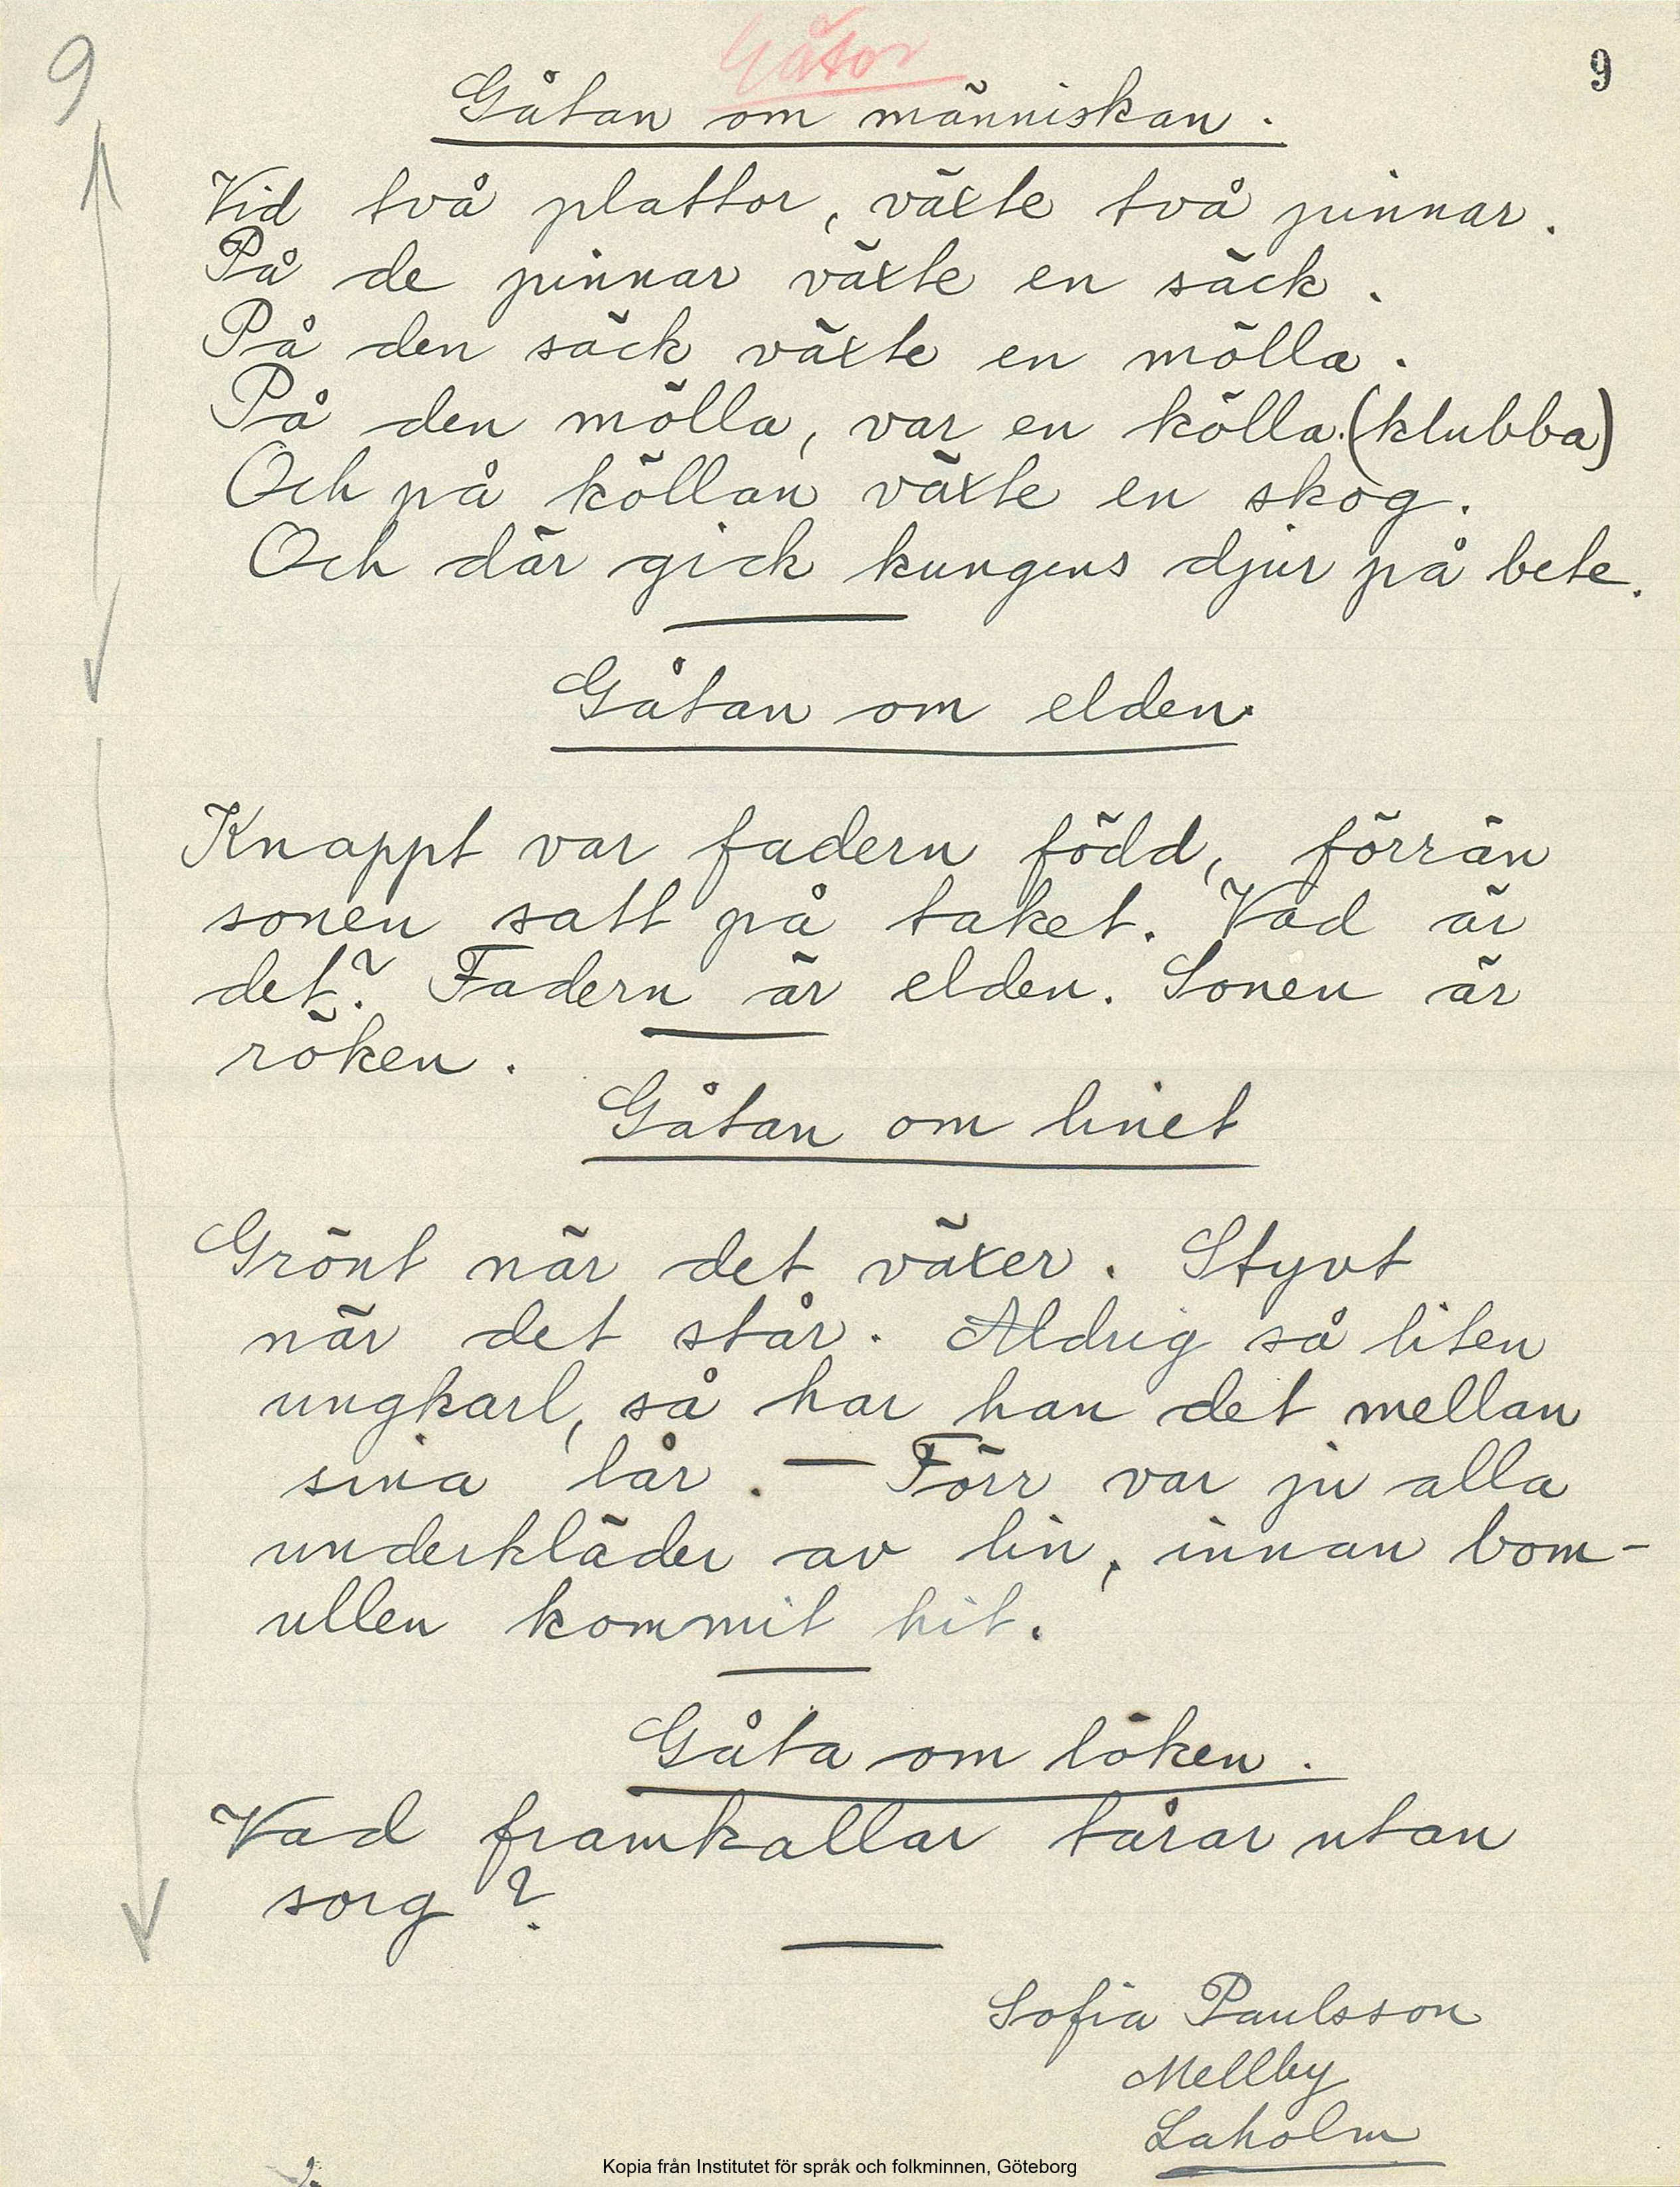 Gåtor
9
9
Gåtan om människan.
Vid två plattor, växte två pinnar.
På de pinnar växte en säck.
På den säck växte en mölla.
På den mölla, var en kölla. (klubba)
Och på köllan växte en skog.
Och där gick kungens djur på bete.
Gåtan om elden.
Knappt var fadern född, förrän
sonen satt på taket. Vad är
det? Fadern är elden. Sonen är
röken.
Gåtan om linet
Grönt när det växer. Styvt
när det står. Aldrig så liten
ungkarl, så har han det mellan
sina lår. — Förr var ju alla
underkläder av lin, innan bom-
ullen kommit hit.
Gåta om löken.
Vad framkallar tårar utan
sorg?
Sofia Paulsson
Mellby
Laholm
Kopia från Institutet för språk och folkminnen, Göteborg